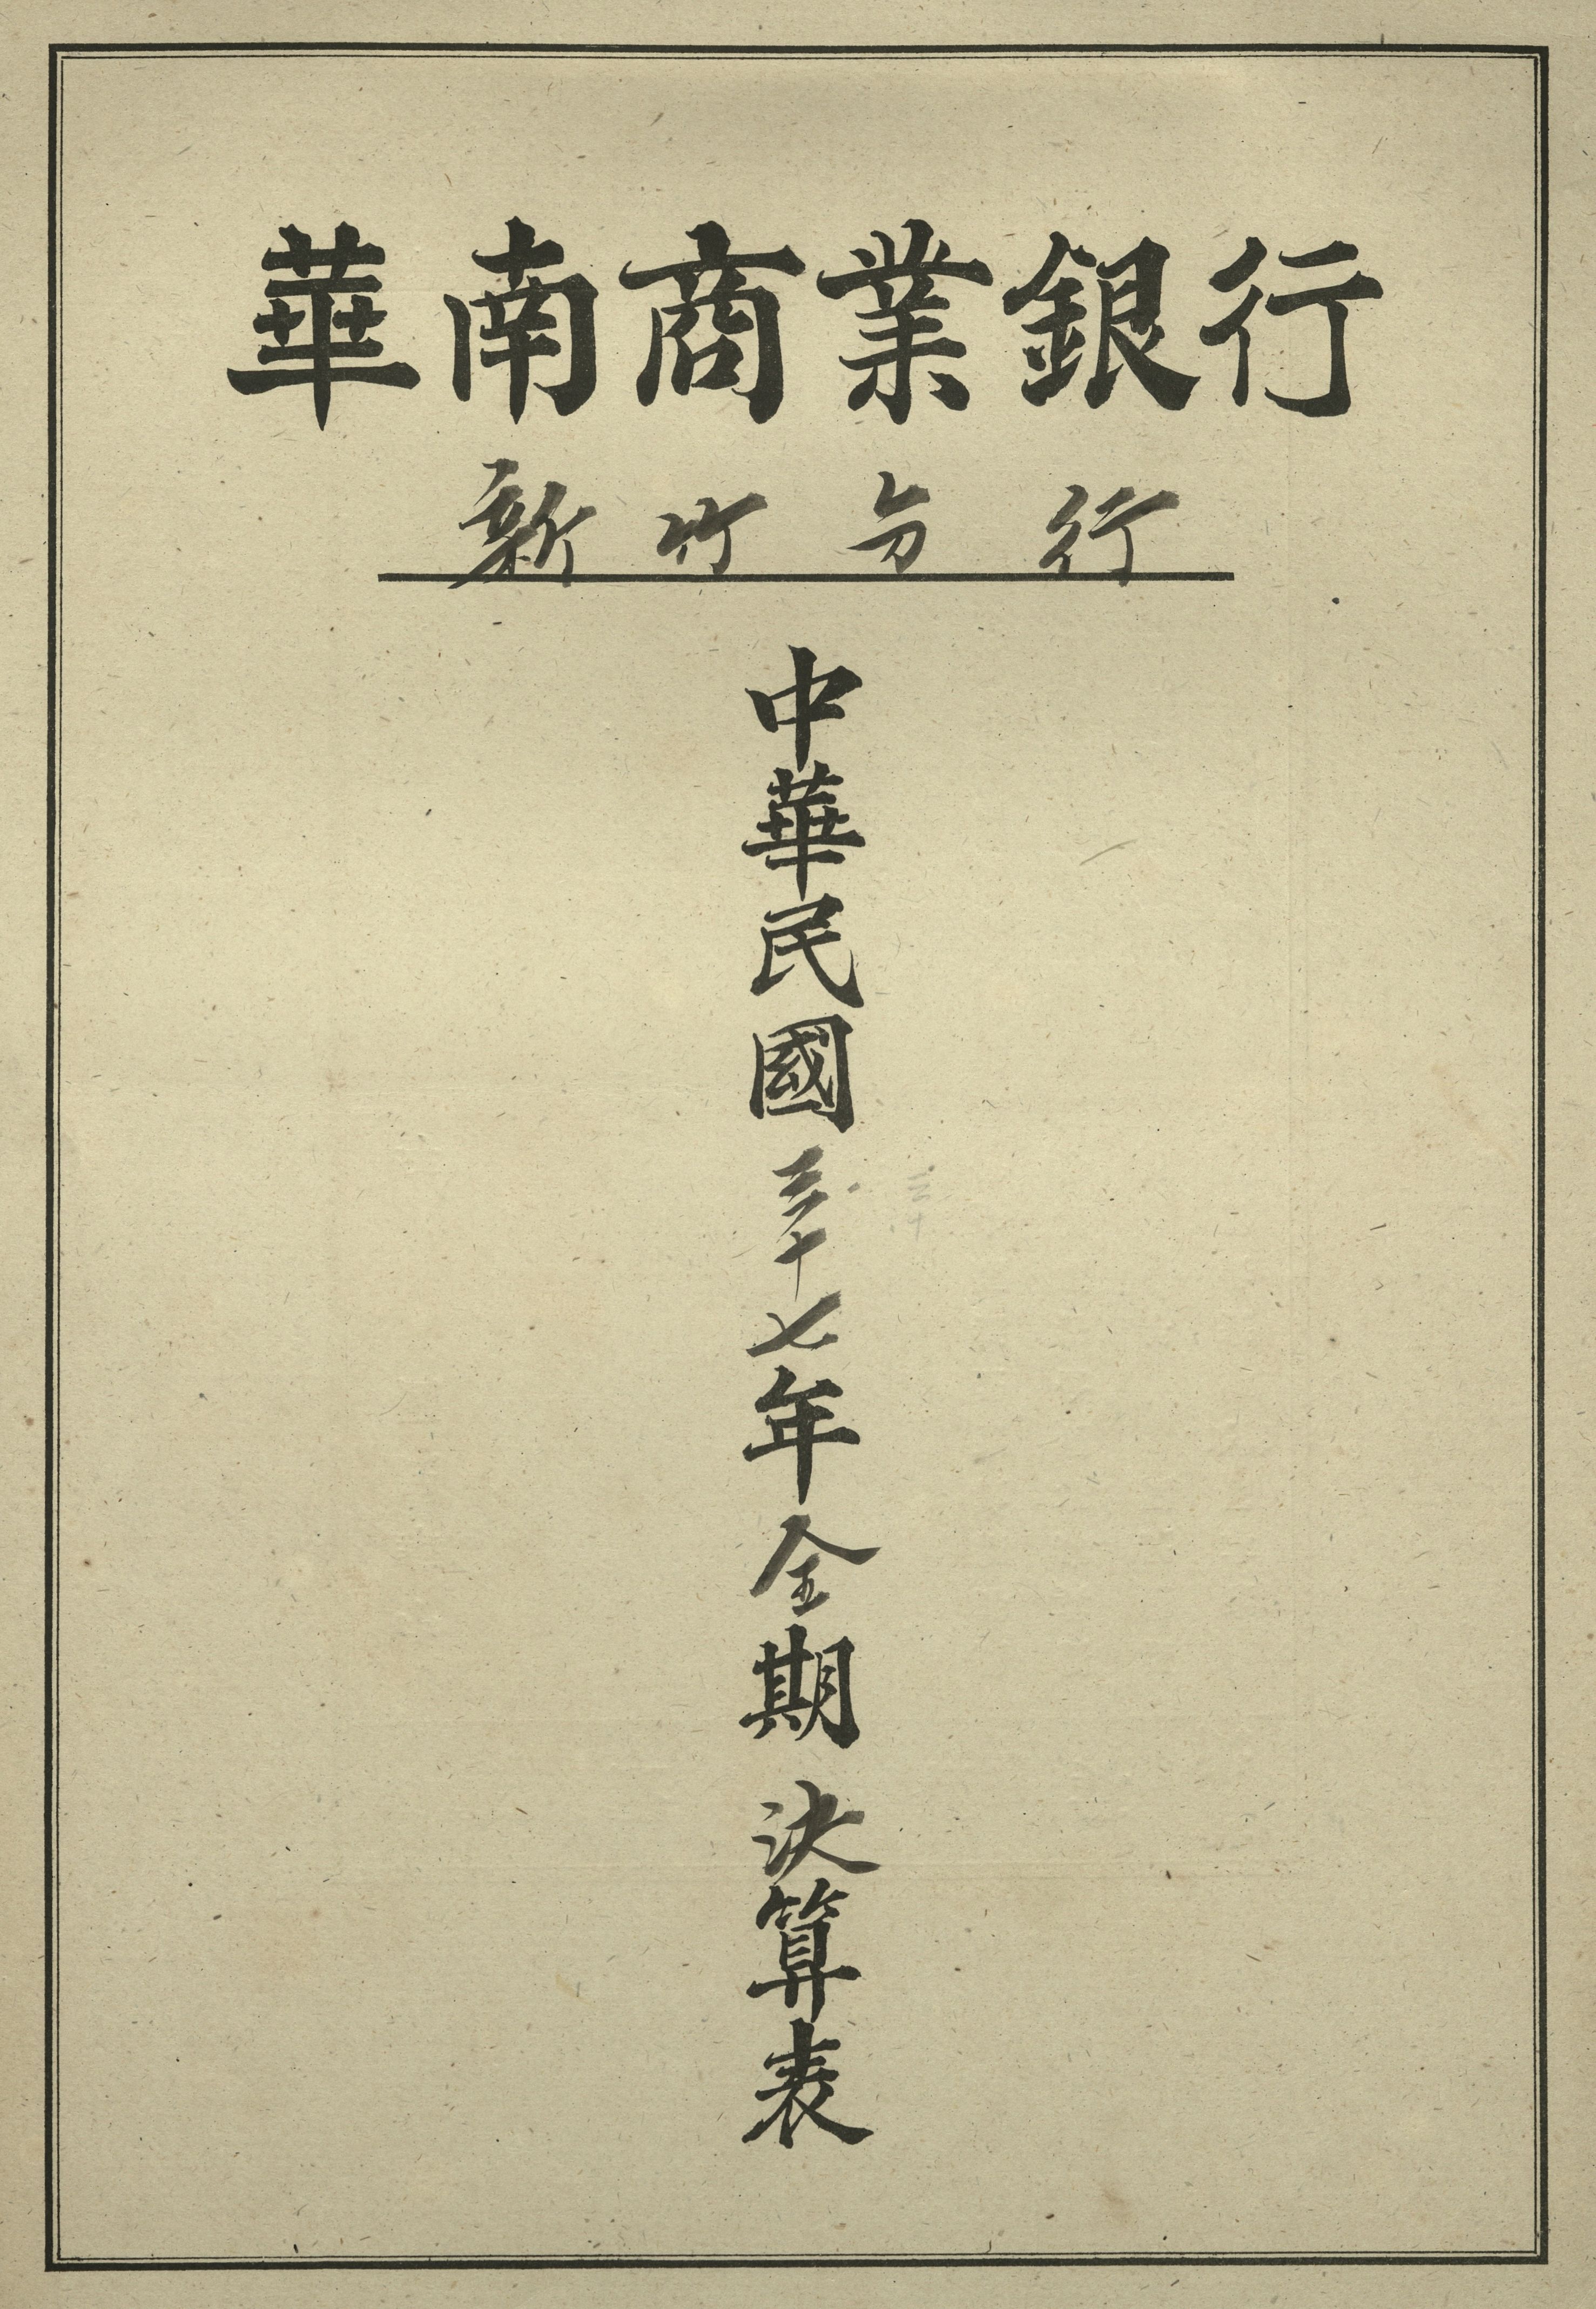 華南商業銀行
新竹分行
中華民國三十七年全期決算表
三十